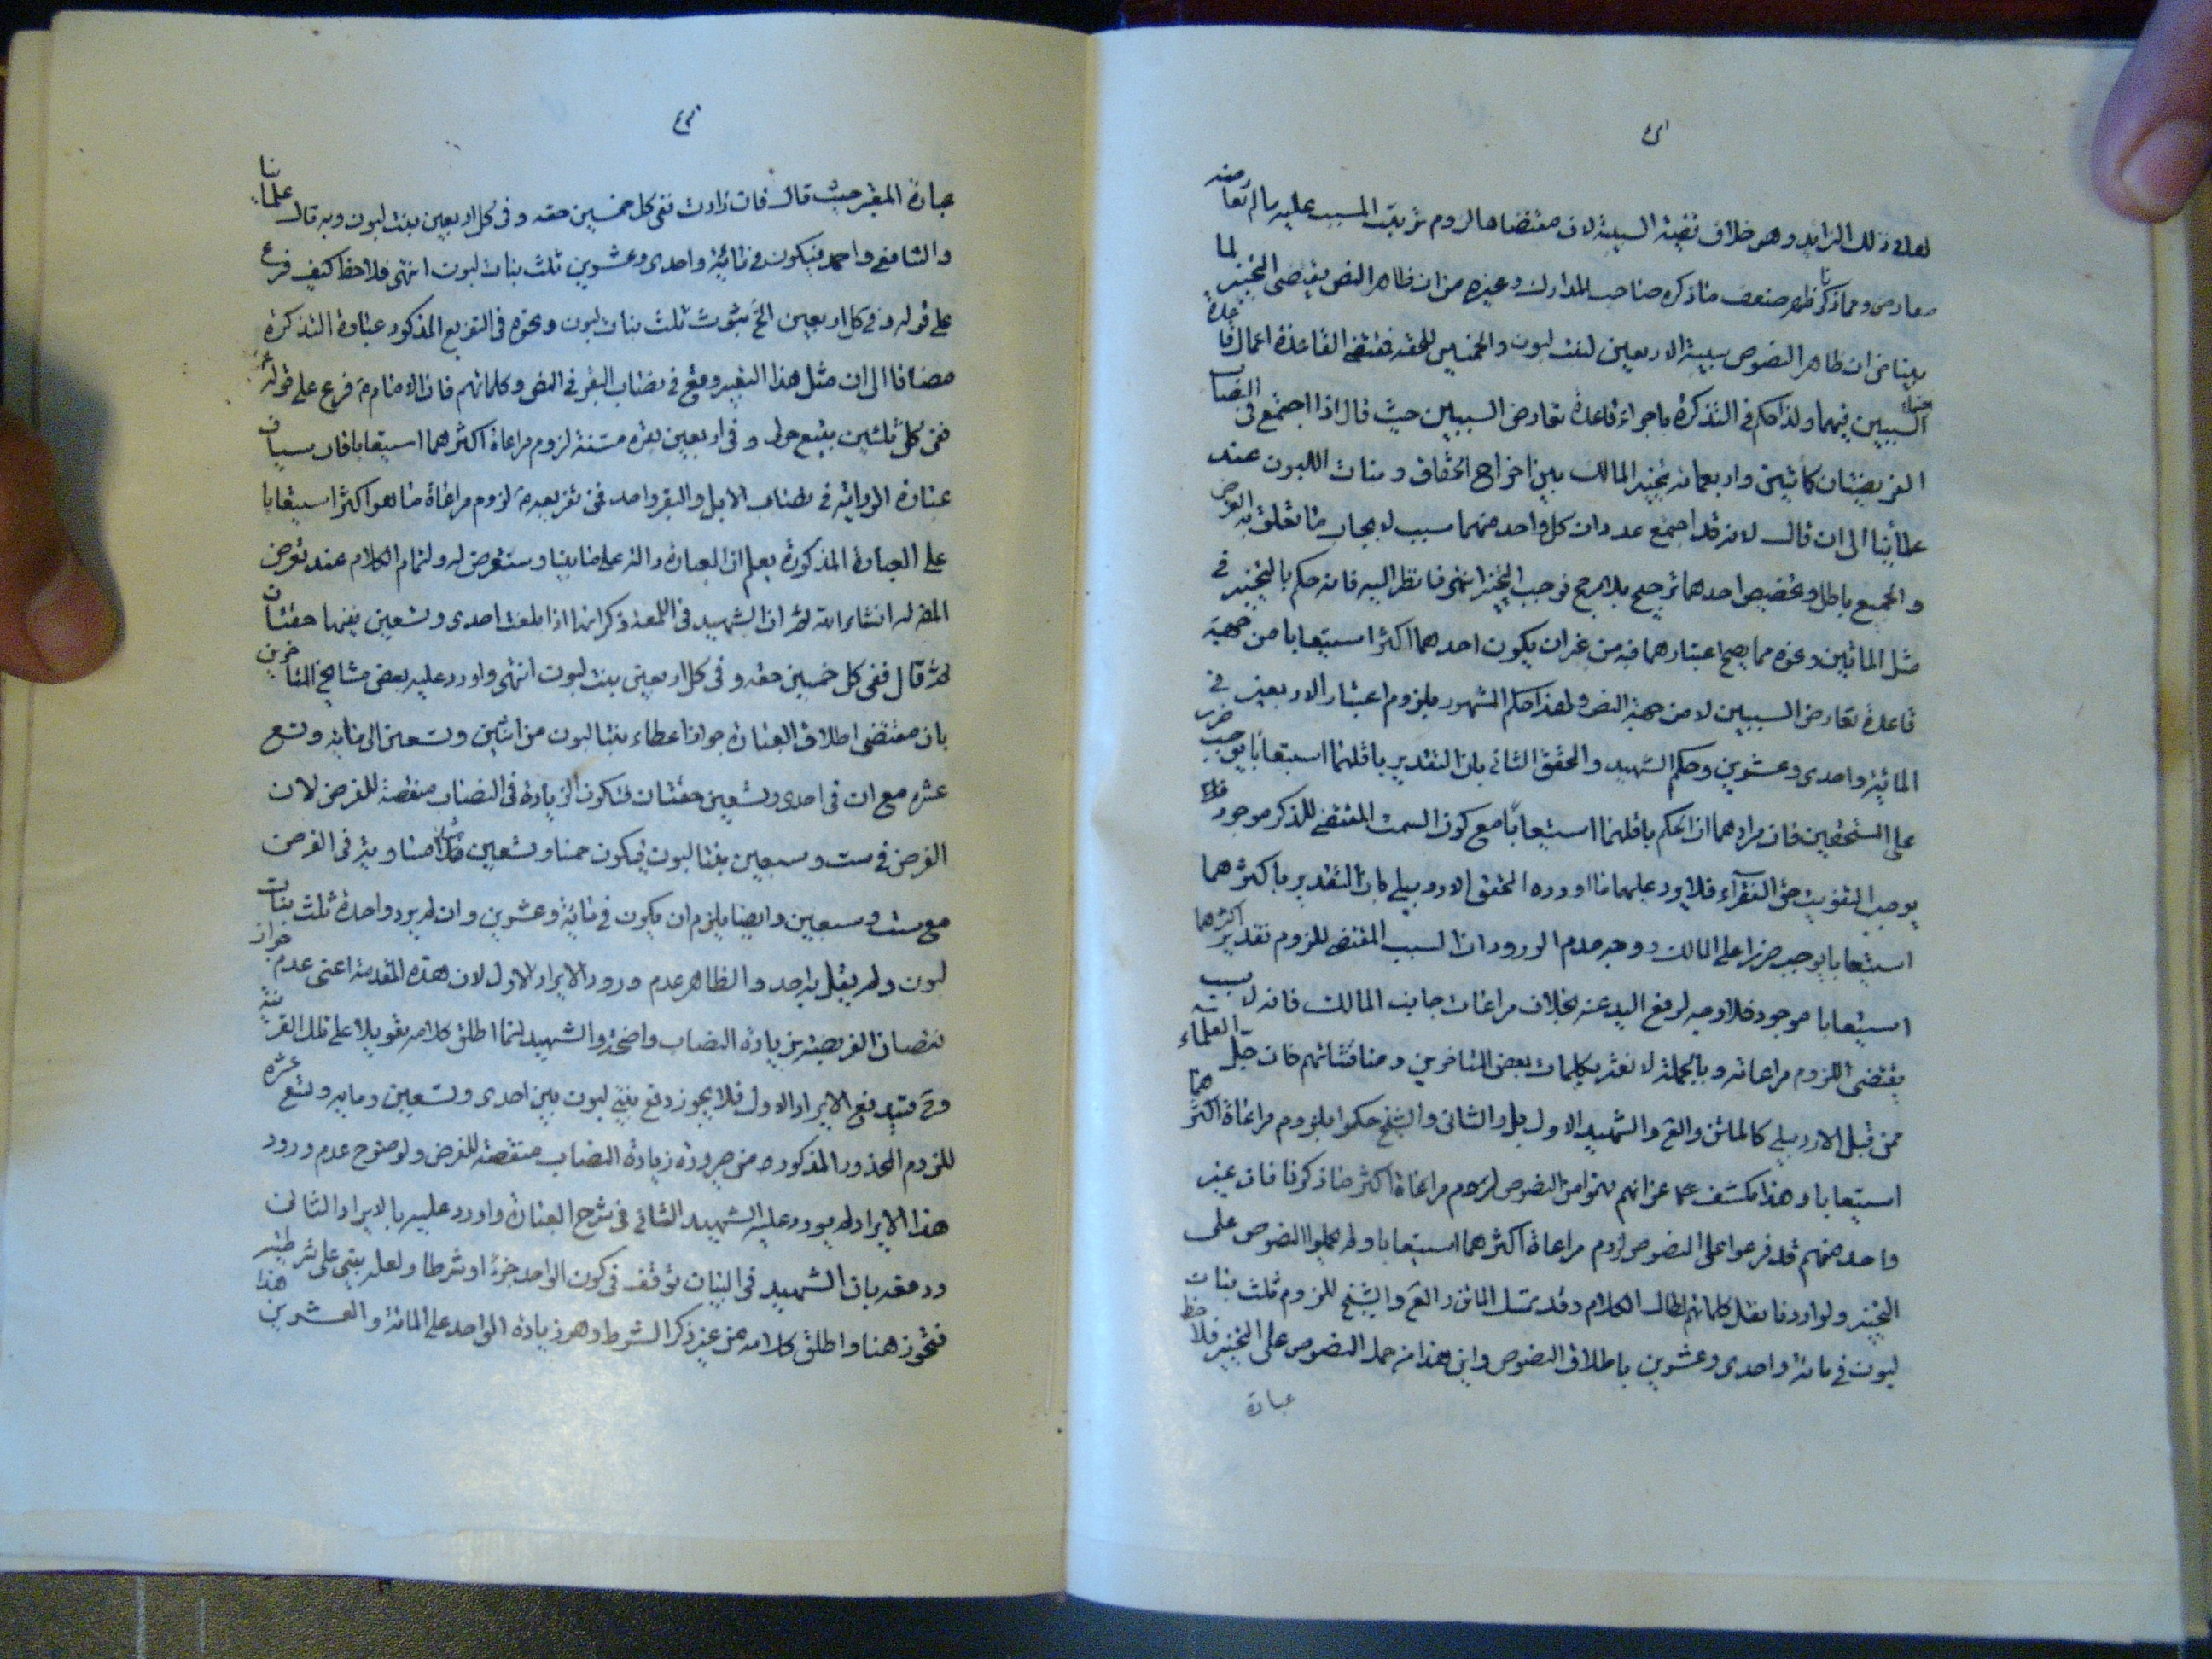 لعلة ذلك الزايد وهو خلاف قضية السببية لان مقتضاها لزوم ترتب المسبب عليه ما لم تعارضه
معارض ومما ذكرنا ظهر ضعف ما ذكره صاحب المدارك وغيره من ان ظاهر النص يقتضى التخيير لما
بينا من ان ظاهر النصوص سببية الاربعين لبنت لبون والخمسين للحقه فمقتضى القاعدة اعمال
السببين فيهما ولذا حكم فى التذكرة باجراء قاعدة تعارض السببين حيث قال اذا اجتمع فى النصاب
الفريضتان كمائتين واربعمائه تخير المالك بين اخراج الحقاق وبنات اللبون عند
علمائنا الى ان قال لانه قد اجتمع عددان كل واحد منهما سبب لايجاب ما تعلق به الفرض
والجميع باطل وتخصيص احدهما ترجيح بلا مرجح فوجب التخير انتهى فانظر اليه فانه حكم بالتخيير فى
مثل المائتين ونحوه مما يصح اعتبارهما فيه من غير ان يكون احدهما اكثر استيعابا من جهة
قاعدة تعارض السببين لا من جهة النص ولهذا حكم المشهور بلزوم اعتبار الاربعين فى
المائة واحدى وعشرين وحكم الشهيد والمحقق الثانى بان التقدير باقلهما استيعابا يوجب ضررا
على المستحقين فان مرادهما ان الحكم باقلهما استيعابا مع كون السبب المقتضى للذكر موجود
يوجب التفويت حق الفقراء فلا يرد عليهما ما اورده المحقق الاردبيلى بان التقدير باكثرهما
استيعابا يوجب ضررا على المالك ووجه عدم الورود ان السبب المقتضى للزوم تقدير اكثرهما
استيعابا موجود فلا وجه لرفع اليد عنه بخلاف مراعات جانب المالك فانه لا سبب
يقتضى اللزوم مراعاته وبالجملة لا تغتر بكلمات بعض المتاخرين ومناقشاتهم فان جل العلماء
ممن قبل الاردبيلى كالماتن والشهيد الاول بل والثانى والشيخ حكموا بلزوم مراعاة اكثرهما
استيعابا وهذا مكشف عما عن انهم فهموا من النصوص لزوم مراعاة اكثر ما ذكرنا فان غير
واحد منهم قد فرعوا على النصوص لزوم مراعاة اكثرهما استيعابا ولم يحملوا النصوص على
التخيير ولو اردنا نقل كلماتهم لطال الكلام وقد تمسك الماتن والشيخ للزوم ثلث بنات
لبون فى مائة واحدى وعشرين باطلاق النصوص واين هذا من حمل النصوص على التخيير فلاحظ
عبارة
عبارة المعتبر حيث قال فان زادت ففى كل خمسين حقه وفى كل اربعين بنت لبون وبه قال علمائنا
والشافعى واحمد فيكون فى مائة واحدى وعشرين ثلث بنات لبون انتهى فلاحظ كيف فرع
على قوله وفى كل اربعين الخ بثبوت ثلث بنات لبون ونحوه فى التفريع المذكور عبارة التذكرة
مضافا الى ان مثل هذا التعبير وقع فى نصاب البقر فى النص وكلماتهم فان الامام ع فرع على قوله
ففى كل ثلثين تبيع حولى وفى اربعين بقره مسنة لزوم مراعاة اكثرهما استيعابا فان سياق
عبارة الرواية فى نصاب الابل والبقر واحد فمن تفريعه ع لزوم مراعاة ما هو اكثر استيعابا
على العبارة المذكورة يعلم ان العبارة دالة على ما بينا وستعرض له ولتمام الكلام عند تعرض
المص له انشاء الله ثم ان الشهيد فى اللمعة ذكر انها اذا بلغت احدى وتسعين ففيها حقتان
ثم قال ففى كل خمسين حقه وفى كل اربعين بنت لبون انتهى واورد عليه بعض مشايخ المتاخرين
بان مقتضى اطلاق العبارة جواز اعطاء بنتا لبون من اثنين وتسعين الى مائة وتسع
عشره مع ان فى احدى وتسعين حقتان فتكون الزيادة فى النصاب منقصة للفرض لان
الفرض فى ست وسبعين بنتا لبون فيكون خمسا وتسعين مثلا مساوية فى الفرض
مع ست وسبعين وايضا يلزم ان يكون فى مائة وعشرين وان لم يزد واحدة ثلث بنات
لبون ولم يقل به احد والظاهر عدم ورود الايراد الاول لان هذه المقدمة اعنى عدم جواز
نقصان الفريضة بزيادة النصاب واضحة والشهيد انما اطلق كلامه تعويلا على تلك القرينة
وح فيندفع الايراد الاول فلا يجوز دفع بنتى لبون بين احدى وتسعين ومايه وتسع عشره
للزوم المحذور المذكوره من صيرورة زيادة النصاب منقصة للفرض ولوضوح عدم ورود
هذا الايراد لم يورد عليه الشهيد الثانى فى شرح العبارة واورد عليه بالايراد الثانى
ورد معه بان الشهيد فى البيان توقف فى كون الواحد جزءا او شرطا ولعله بنى على شرطيته
فتجوز هنا واطلق كلامه من غير ذكر الشرط وهو زيادة الواحد على المائة والعشرين هذا